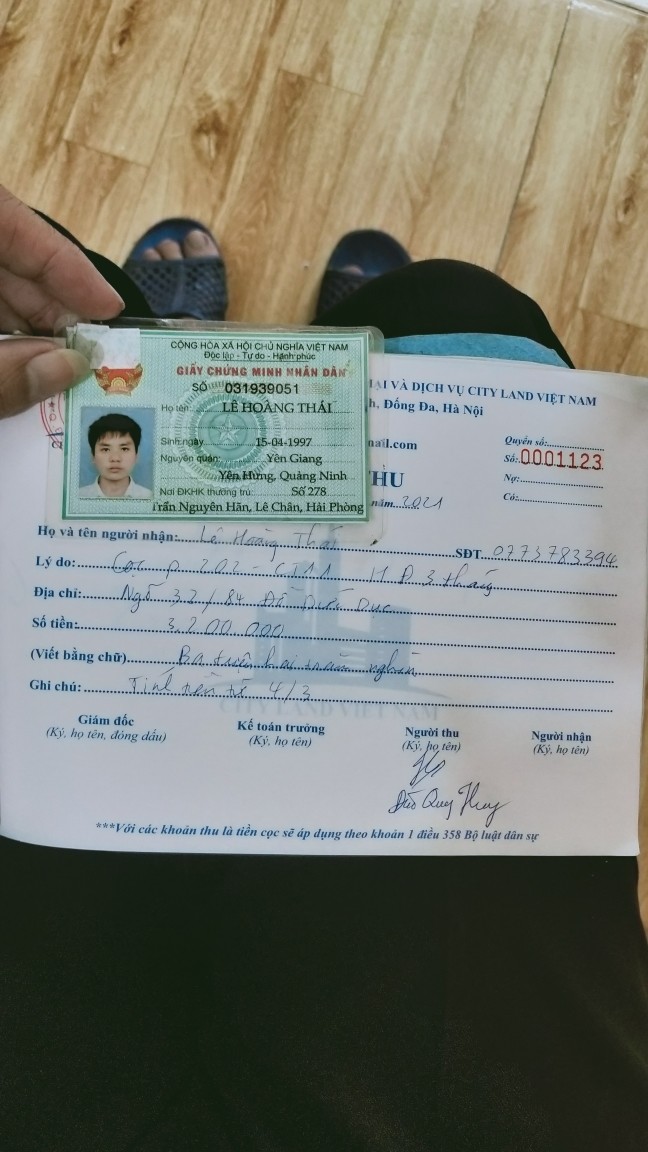 CỘNG HÒA XÃ HỘI CHỦ NGHĨA VIỆT NAM
Độc lập - Tự do - Hạnh phúc
GIẤY CHỨNG MINH NHÂN DÂN
SỐ 031939051
Họ tên: LÊ HOÀNG THÁI
Sinh ngày 15-04-1997
Nguyên quán: Yên Giang
Yên Hưng, Quảng Ninh
Nơi ĐKHK thường trú: Số 278
Trần Nguyên Hãn, Lê Chân, Hải Phòng
MẠI VÀ DỊCH VỤ CITY LAND VIỆT NAM
h, Đống Đa, Hà Nội
mail.com
Quyển số:
Số: 0001123
Nợ:
Có:
THU
năm 2021
Họ và tên người nhận: Lê Hoàng Thái SĐT 0773783394
Lý do: Cọc P 202 - HĐ 3 tháng
Địa chỉ: Ngõ 32/84
Số tiền: 3.200.000
(Viết bằng chữ) Ba triệu hai trăm nghìn
Ghi chú: Tính tiền từ 4/3
CITY LAND VIỆT NAM
Giám đốc
(Ký, họ tên, đóng dấu)
Kế toán trưởng
(Ký, họ tên)
Người thu
(Ký, họ tên)
Người nhận
(Ký, họ tên)
Quy Thuy
***Với các khoản thu là tiền cọc sẽ áp dụng theo khoản 1 điều 358 Bộ luật dân sự